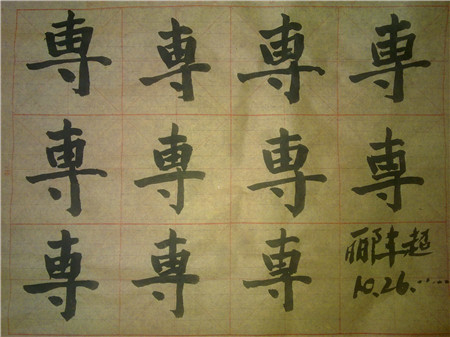 専専専専
専専専専
専専専
郦 超
10.26.……